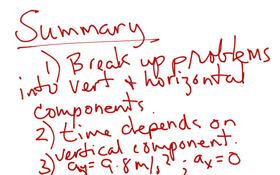 Summary
1) Break up problems
into vert & horizontal
components.
2) time depends on
vertical component.
3) ay = 9.8 m/s²; ax = 0